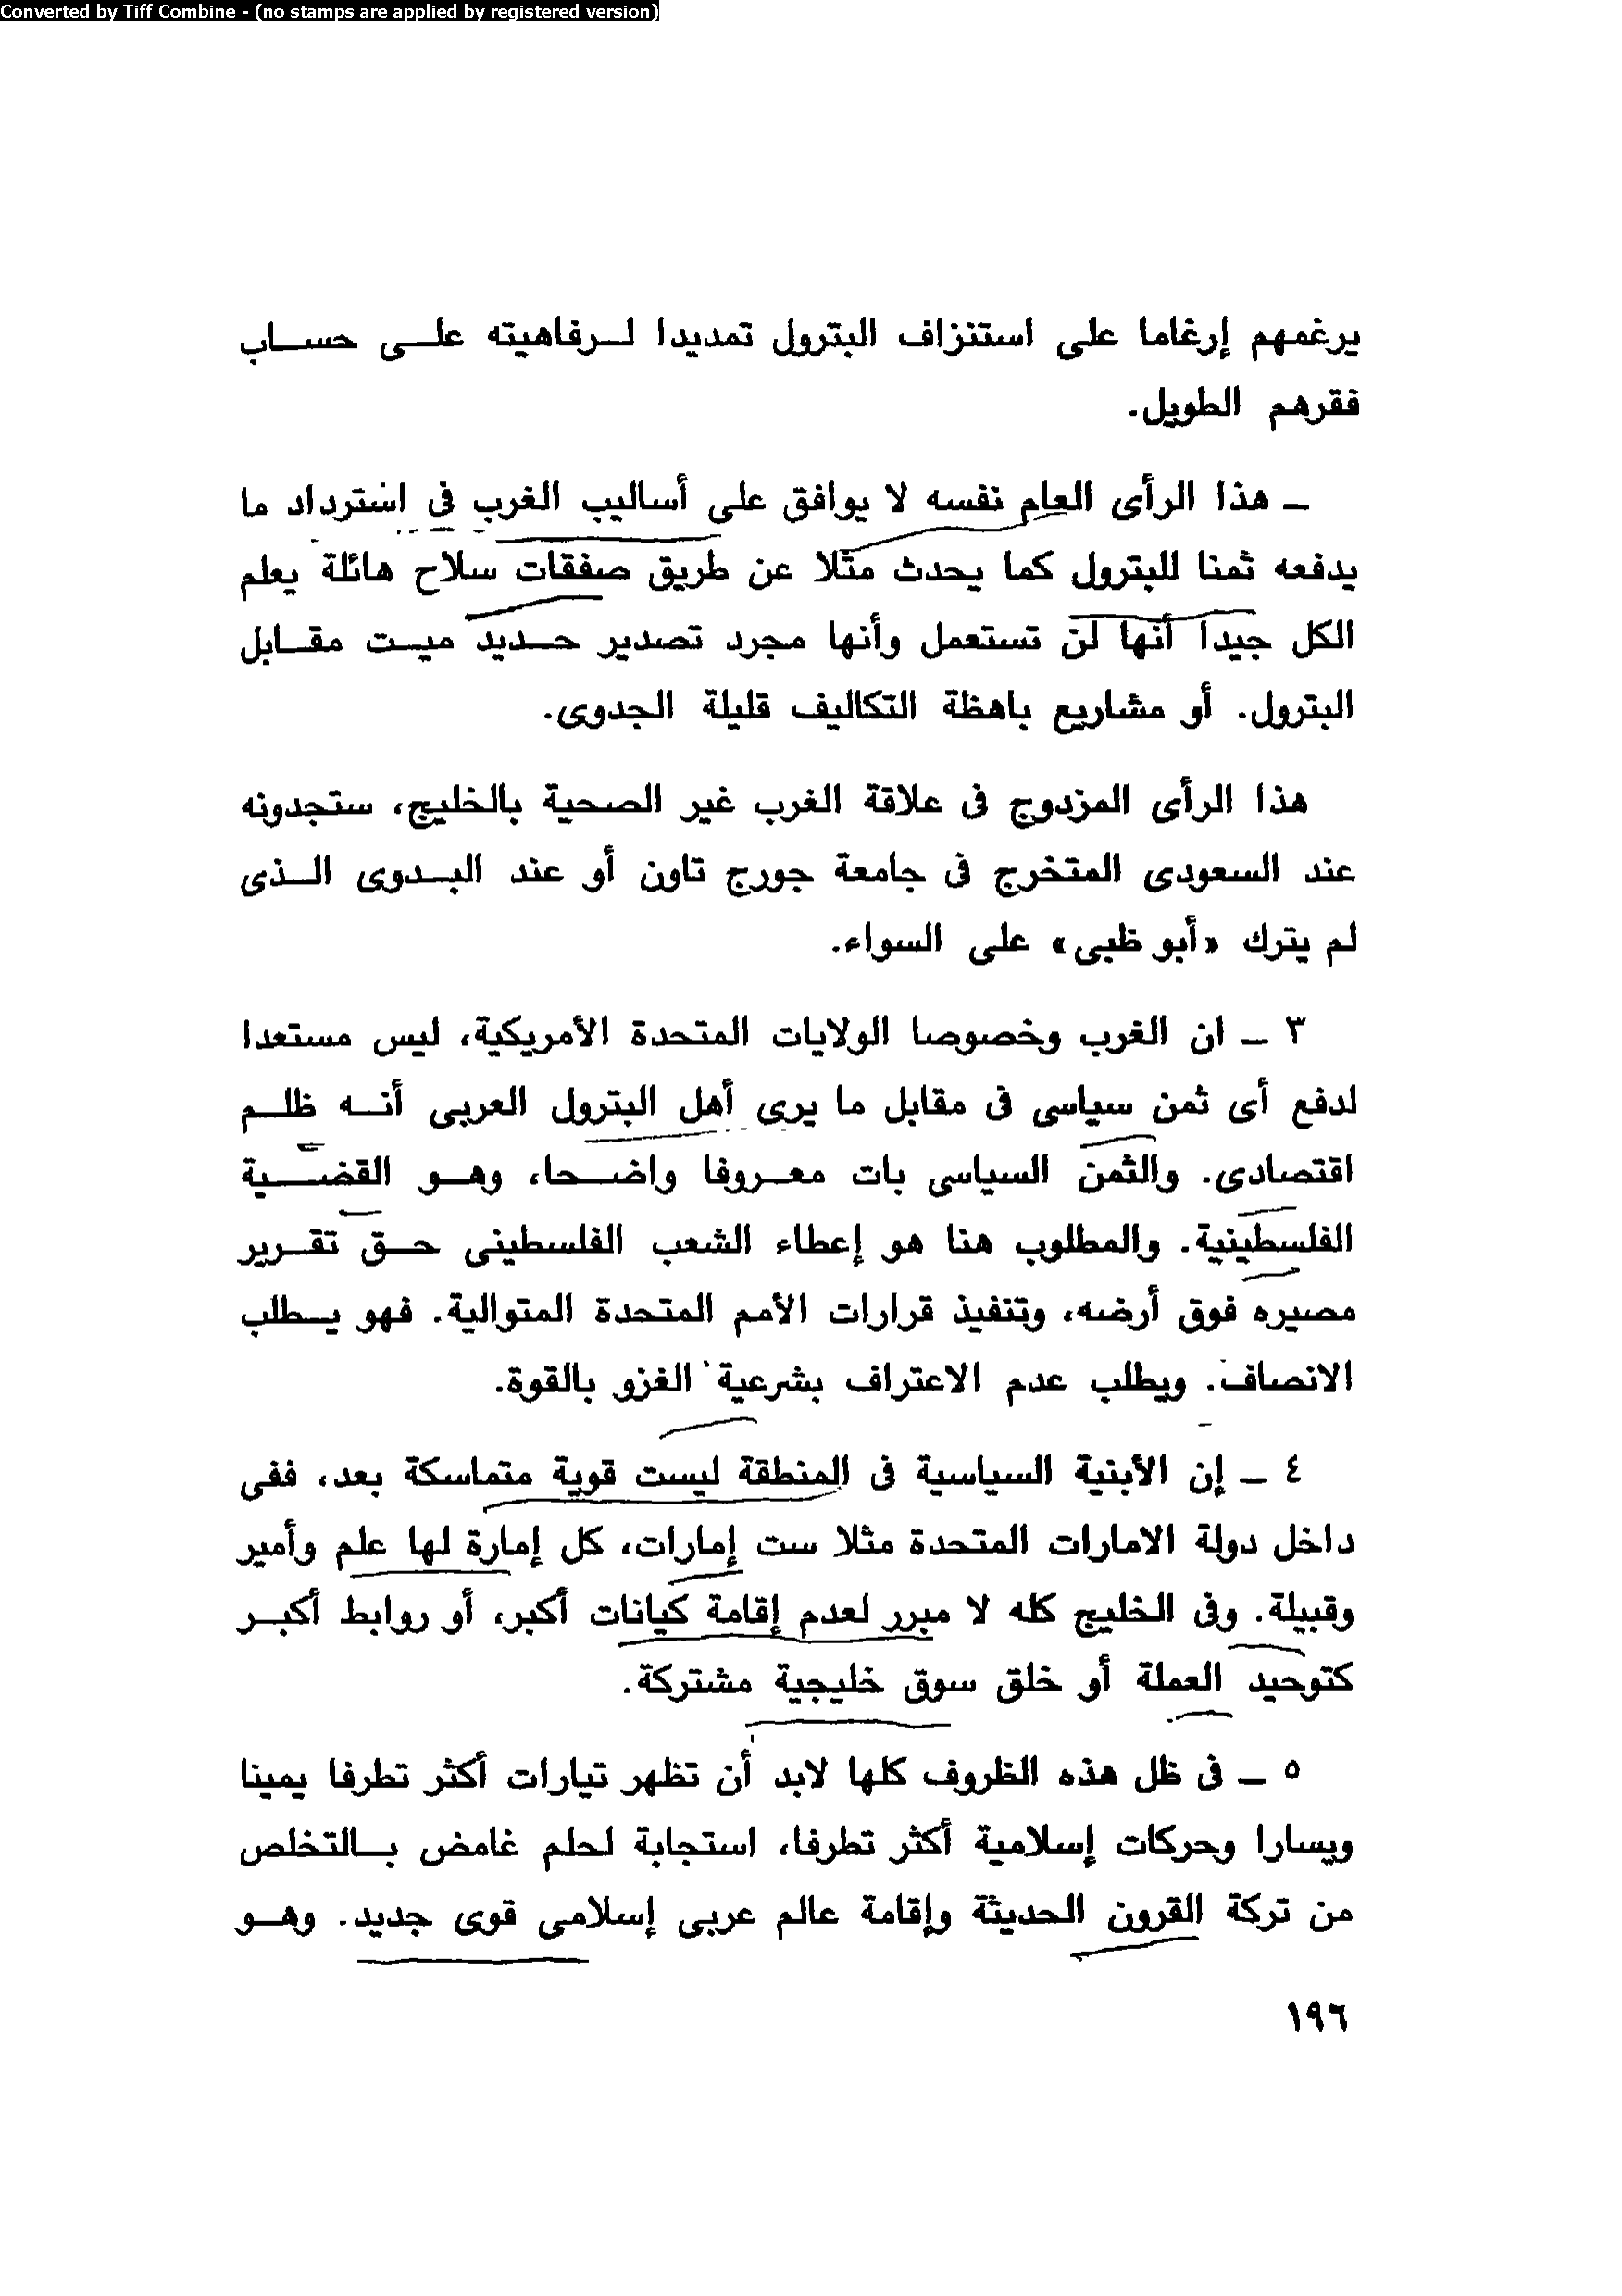 Converted by Tiff Combine - (no stamps are applied by registered version)
يرغمهم إرغاما على استنزاف البترول تمديدا لرفاهيته على حساب
فقرهم الطويل.
ـ هذا الرأى العام نفسه لا يوافق على أساليب الغرب فى استرداد ما
يدفعه ثمنا للبترول كما يحدث مثلا عن طريق صفقات سلاح هائلة يعلم
الكل جيدا أنها لن تستعمل وأنها مجرد تصدير حديد ميت مقابل
البترول. أو مشاريع باهظة التكاليف قليلة الجدوى.
هذا الرأى المزدوج فى علاقة الغرب غير الصحية بالخليج، ستجدونه
عند السعودى المتخرج فى جامعة جورج تاون أو عند البدوى الذى
لم يترك «أبو ظبى» على السواء.
٣ ـ ان الغرب وخصوصا الولايات المتحدة الأمريكية، ليس مستعدا
لدفع أى ثمن سياسى فى مقابل ما يرى أهل البترول العربى أنه ظلم
اقتصادى. والثمن السياسى بات معروفا واضحا، وهو القضية
الفلسطينية. والمطلوب هنا هو إعطاء الشعب الفلسطينى حق تقرير
مصيره فوق أرضه، وتنفيذ قرارات الأمم المتحدة المتوالية. فهو يطلب
الانصاف. ويطلب عدم الاعتراف بشرعية الغزو بالقوة.
٤ ـ إن الأبنية السياسية فى المنطقة ليست قوية متماسكة بعد، ففى
داخل دولة الامارات المتحدة مثلا ست إمارات، كل إمارة لها علم وأمير
وقبيلة. وفى الخليج كله لا مبرر لعدم إقامة كيانات أكبر، أو روابط أكبر
كتوحيد العملة أو خلق سوق خليجية مشتركة.
٥ ـ فى ظل هذه الظروف كلها لابد أن تظهر تيارات أكثر تطرفا يمينا
ويسارا وحركات إسلامية أكثر تطرفا، استجابة لحلم غامض بالتخلص
من تركة القرون الحديثة وإقامة عالم عربى إسلامى قوى جديد. وهو
١٩٦